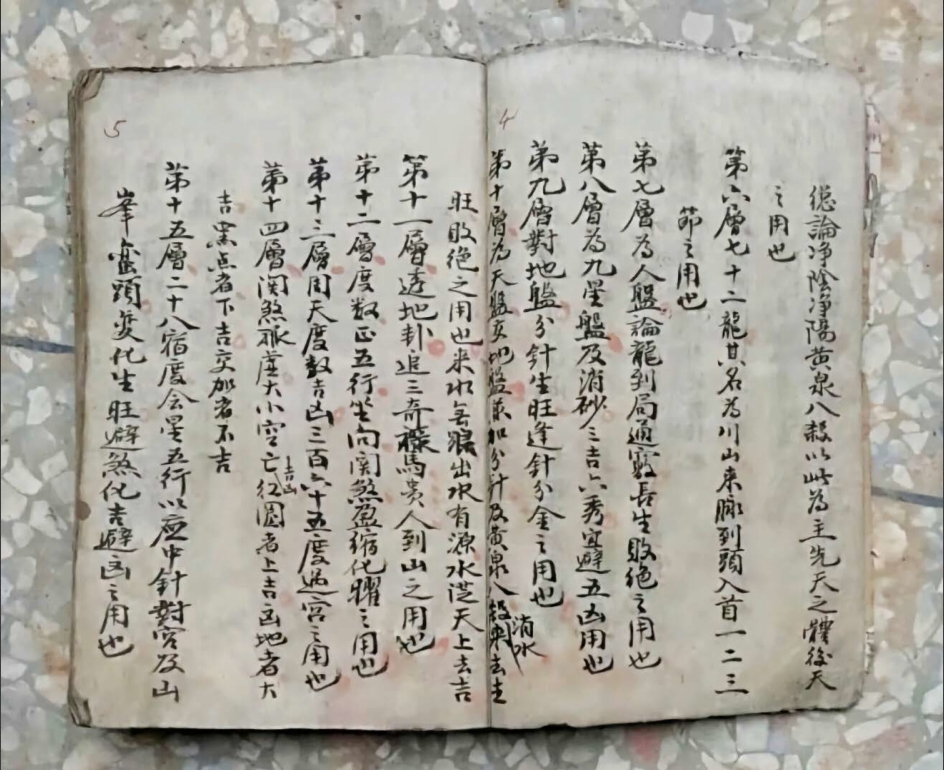 4
總論净陰净陽黄泉八殺以此為主先天之體後天
之用也
第六層七十二龍甘名為川山来脉到頭入首一二三
節之用也
第七層為人盤論龍到局通竅長生敗絶之用也
第八層為九星盤及消砂三吉六秀宜避五凶用也
第九層對地盤分針生旺逢針分金之用也
第十層為天盤加分針及黄泉八殺去
消水
5
旺敗绝之用也来水出水有源水從天上去吉
第十一層透地卦追三奇禄馬贵人到山之用也
第十二層度数正五行坐向関煞盈缩化曜之用也
第十三層周天度数吉凶三百六十五度過宫之用也
第十四層関煞大小空亡红圆者上吉凶地者大
吉凶
吉黑点者下吉交加者不吉
第十五層二十八宿度会星五行以中針對宫及山
峯巒頭变化生旺避煞化吉避凶之用也